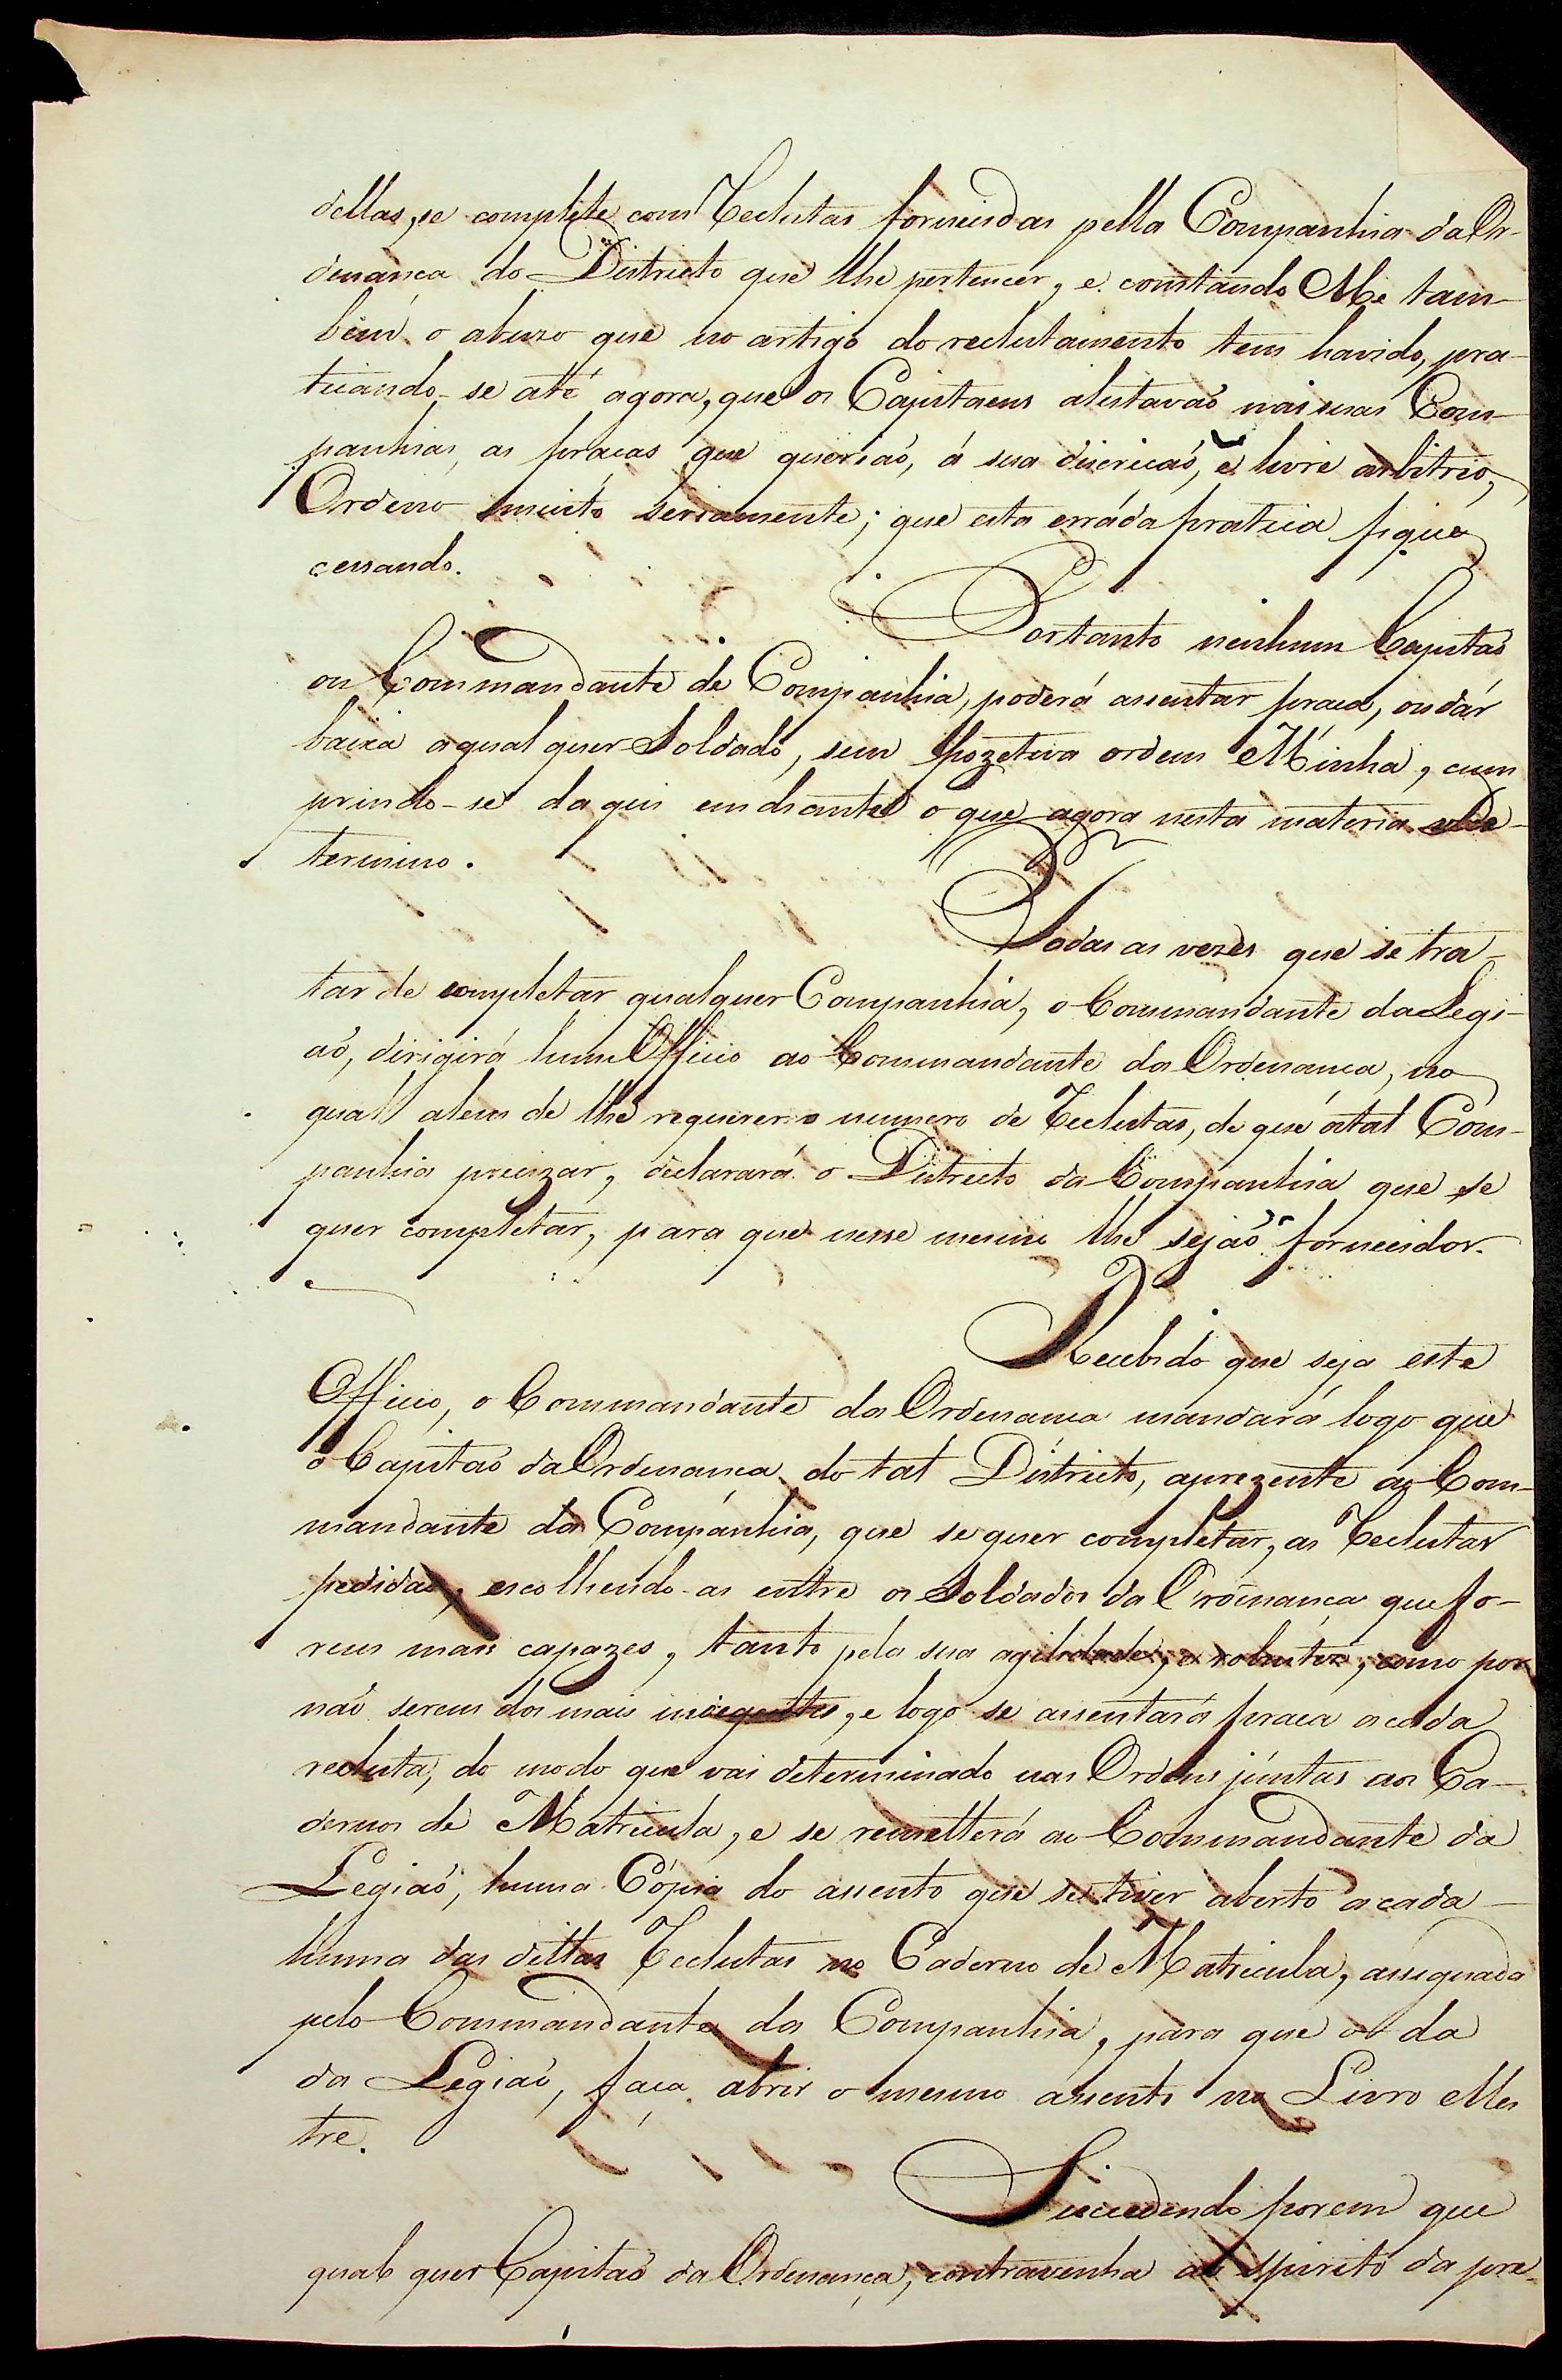 dellas, se complete com Reclutas fornecidas pella Companhia da Or-
denança do Districto que lhe pertencer, e constando Me tam-
bem o abuzo que no artigo do reclutamento tem havido, pra-
ticando-se até agora, que os Capitaens alistavaõ nas suas Com-
panhias, as praças que queriaõ, á sua discriçaõ, e livre arbitrio,
Ordeno muito seriamente; que esta erráda pratica fique
cessando.
Portanto nenhum Capitaõ
ou Commandante de Companhia, poderá assentar praça, ou dár
baixa a qual quer Soldado, sem pozetiva ordem Minha, cum
prindo-se daqui em diante o que agora nesta materia de-
termino.
Todas as vezes que se tra-
tar de completar qualquer Companhia, o Commandante da Legi-
aõ, dirigirá hum Officio ao Commandante da Ordenança, no
qual alem de lhe requerer o numero de Reclutas, de que a tal Com-
panhia precizar, declarará o Districto da Companhia que se
quer completar, para que nesse mesmo lhe sejaõ fornecidos.
Recebido que seja este
Officio, o Commandante da Ordenança mandará logo que
o Capitaõ da Ordenança do tal Districto, aprezente ao Com-
mandante da Companhia, que se quer completar, as Reclutas
pedidas, escolhendo-as entre os Soldados da Ordenança que fo-
rem mais capazes, tanto pela sua agilidade, e robustez, como por
naõ serem dos mais indegentes, e logo se assentará praça a cada
recluta, do modo que vai determinado nas Ordens juntas aos Ca-
dernos de Matricula, e se remetterá ao Commandante da
Legiaõ, huma Cópia do assento que se tiver aberto a cada
huma das dittas Reclutas no Caderno de Matricula, assignada
pelo Commandante da Companhia, para que o da
da Legiaõ, faça abrir o mesmo assento no Livro Mes
tre.
Succedendo porem que
qual quer Capitaõ da Ordenança, contravenha ao spirito da pre-